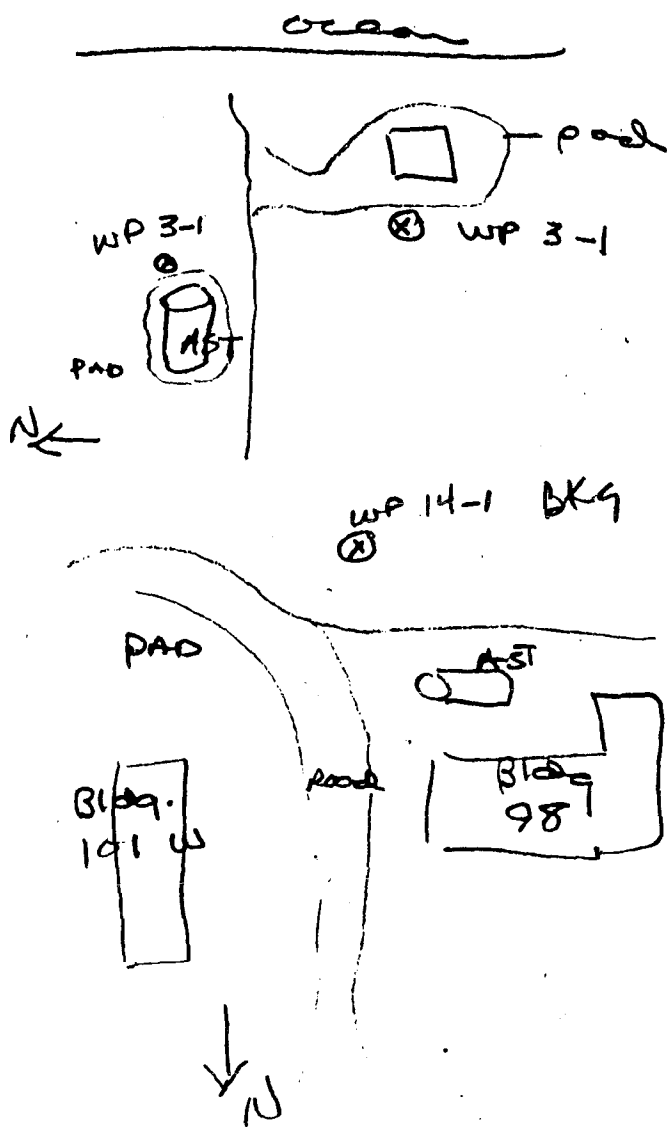 ocean
pad
WP 3-1
WP 3-1
AST
PAD
N
WP 14-1 BKG
PAD
AST
Road
Bldg.
101 W
Bldg
98
N